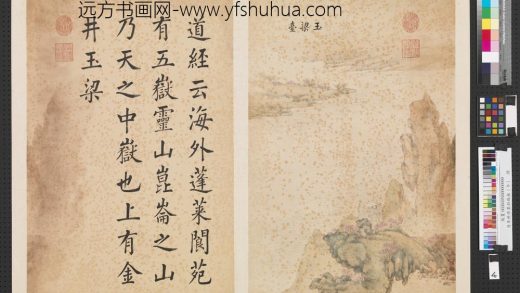 远方书画网-www.yfshuhua.com
玉梁臺
道經云海外蓬莱閬苑
有五嶽靈山崑崙之山
乃天之中嶽也上有金
井玉梁
4